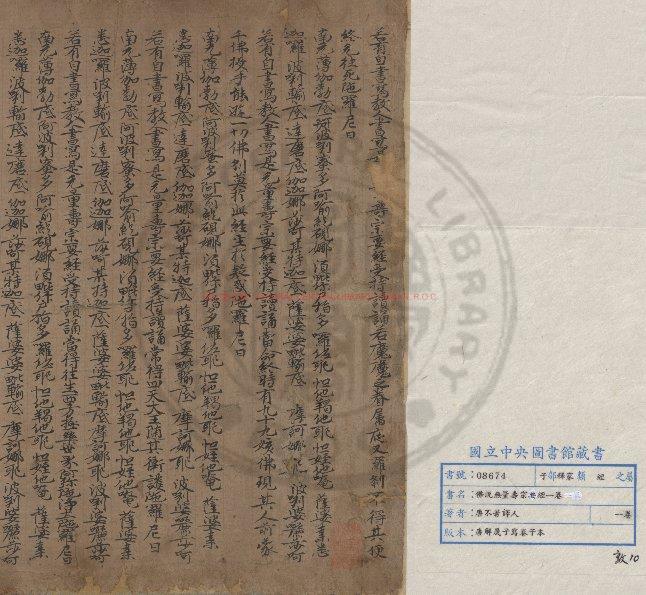 若有自書寫教人書寫是 壽宗要經受持讀誦若魔魔之眷属夜叉羅剎不得其便
終无枉死陁羅尼曰
南无薄伽勃底阿波唎蜜多阿喻紇硯娜須毗你悉指多羅佐耶怛他羯他耶怛姪他唵薩婆桑悉
迦囉波唎輸底達磨底伽迦娜莎訶其持迦底薩婆婆毗輸底摩訶娜耶波唎婆囇莎訶
若有自書寫教人書寫是无量壽宗要經受持讀誦當命終時有九十九姟佛現其人前蒙
千佛授手能遊一切佛剎莫於此經生於疑惑陁羅尼曰
南无薄伽勃底阿波唎蜜多阿喻紇硯娜須毗你悉指多羅佐耶怛他羯他耶怛姪他唵薩婆桑
悉迦囉波唎輸底達磨底伽迦娜莎訶其持迦底薩婆婆毗輸底摩訶娜耶波唎婆囇莎訶
若有自書寫教人書寫是无量壽宗要經受持讀誦常得四天大王隨其衛護陁羅尼曰
南无薄伽勃底阿波唎蜜多阿喻紇硯娜須毗你悉指多羅佐耶怛他羯他耶怛姪他唵薩婆桑
悉迦囉波唎輸底達磨底伽迦娜莎訶其持迦底薩婆婆毗輸底摩訶娜耶波唎婆囇莎訶
若有自書寫教人書寫是无量壽宗要經受持讀誦當得往生西方極樂世界阿彌陁淨土陁羅尼曰
南无薄伽勃底阿波唎蜜多阿喻紇硯娜須毗你悉指多羅佐耶怛他羯他耶怛姪他唵薩婆桑
悉迦囉波唎輸底達磨底伽迦娜莎訶其持迦底薩婆婆毗輸底摩訶娜耶波唎婆囇莎訶
LIBRARY
R.O.C.
國立中央圖書館藏書
書號：08674 子部釋家類 經 之屬
書名：佛說無量壽宗要經一卷
著者：唐不著譯人 一卷
版本：唐解晟子寫卷子本
敦10